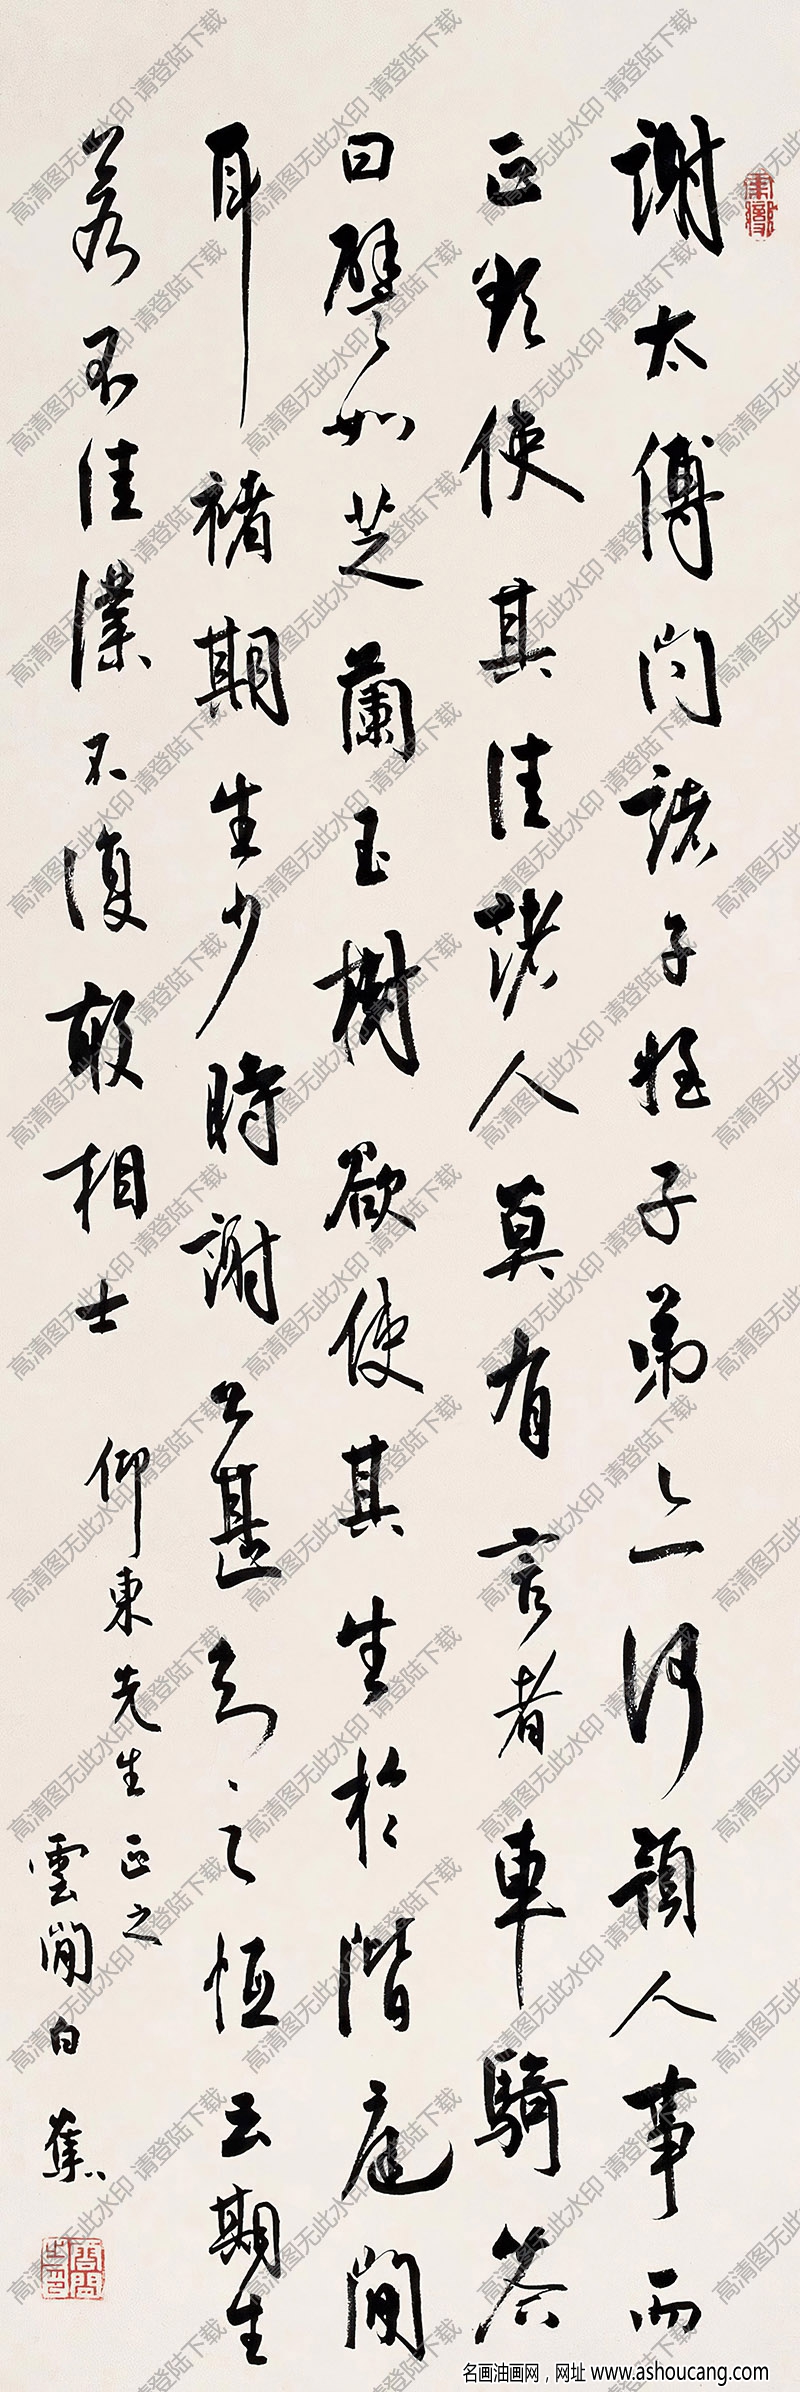 謝太傅问諸子姪子弟亦何預人事而
正欲使其佳諸人莫有言者車騎答
曰譬如芝蘭玉樹欲使其生於階庭間
耳褚期生少時謝公甚知之恆云期生
若不佳僕不復敢相士 仰東先生正之
雲間白蕉
高清图无此水印 请登陆下载
名画油画网，网址 www.ashoucang.com